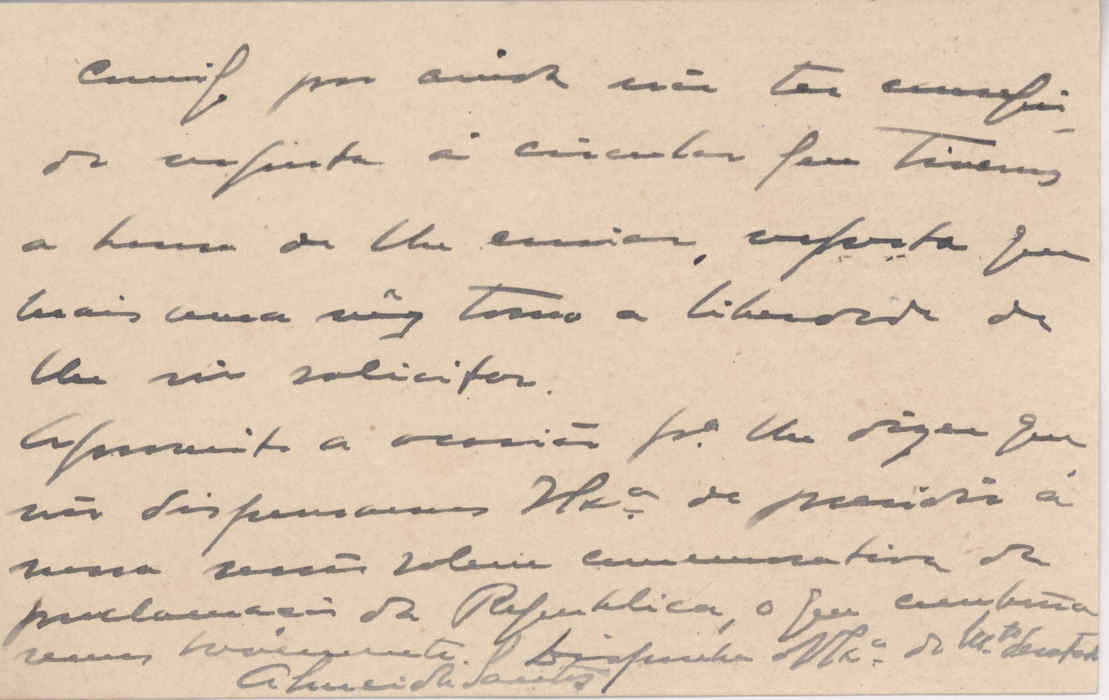 por ainda não ter consegui-
do resposta á circular que tivemos
a honra de lhe enviar, resposta que
mais uma vêz tomo a liberdade de
lhe vir solicitar.
Aproveito a ocasião pª lhe dizer que
não dispensamos V. Exª de presidir á
nossa sessão solene comemorativa da
proclamação da Republica, o que combina-
remos novamente. Disponha V. Exª do Mto
Almeida Santos